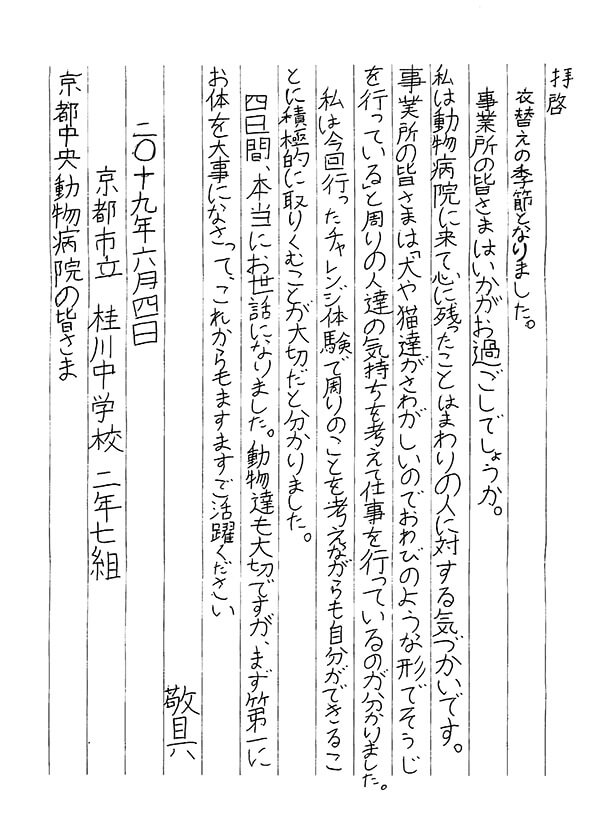 拝啓
衣替えの季節となりました。
事業所の皆さまはいかがお過ごしでしょうか。
私は動物病院に来て心に残ったことはまわりの人に対する気づかいです。
事業所の皆さまは「犬や猫達がさわがしいのでおわびのような形でそうじ
を行っている」と周りの人達の気持ちを考えて仕事を行っているのが分かりました。
私は今回行ったチャレンジ体験で周りのことを考えながらも自分ができるこ
とに積極的に取りくむことが大切だと分かりました。
四日間、本当にお世話になりました。動物達も大切ですが、まず第一に
お体を大事になさって、これからもますますご活躍ください
敬具
二〇十九年六月四日
京都市立 桂川中学校 二年七組
京都中央動物病院の皆さま